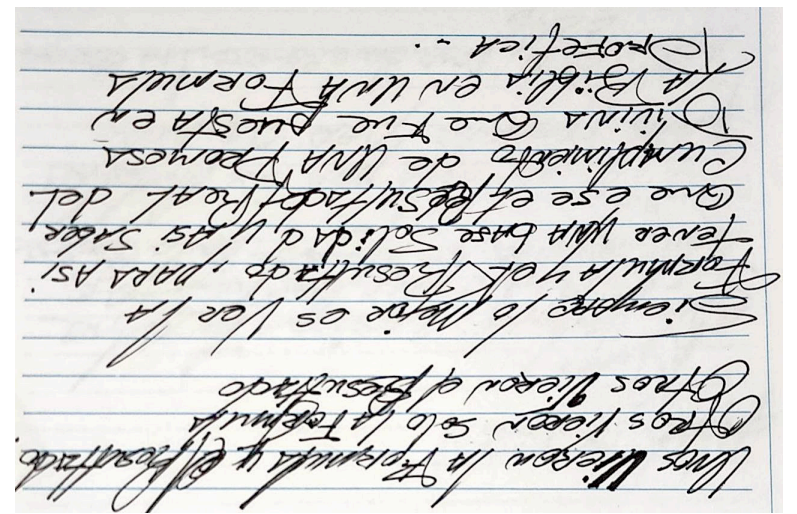 Unos Vieron la Formula y el Resultado.
Otros Vieron Solo la Formula
Otros Vieron el Resultado
Siempre lo mejor es Ver la
Formula y el Resultado, para Asi
Tener una base Solida y Asi Saber
Que ese el Resultado Real del
Cumplimiento de Una Promesa
Divina Que Fue puesta en
La Biblia en Una Formula
Profetica.